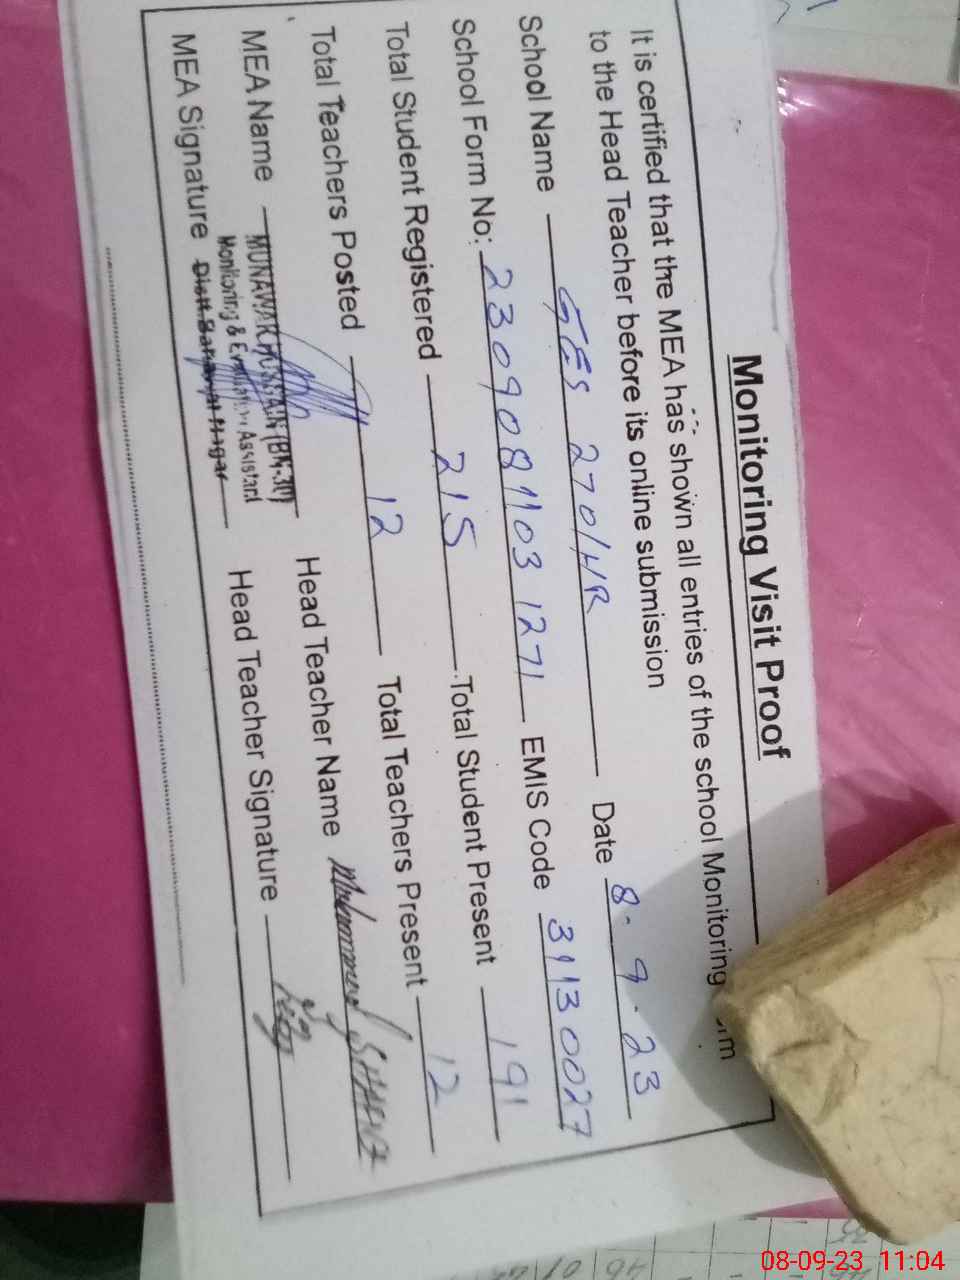 Monitoring Visit Proof
It is certified that the MEA has shown all entries of the school Monitoring
to the Head Teacher before its online submission
School Name GES 270/HR Date 8.9.23
School Form No: 2309081103 1271 EMIS Code 31130027
Total Student Registered 215 Total Student Present 191
Total Teachers Posted 12 Total Teachers Present 12
MEA Name MUNAWAR HUSSAIN (BN-30) Head Teacher Name Muhammad
Monitoring & Evaluation Assistant
MEA Signature Distt. Bahawal Nagar Head Teacher Signature
08-09-23 11:04